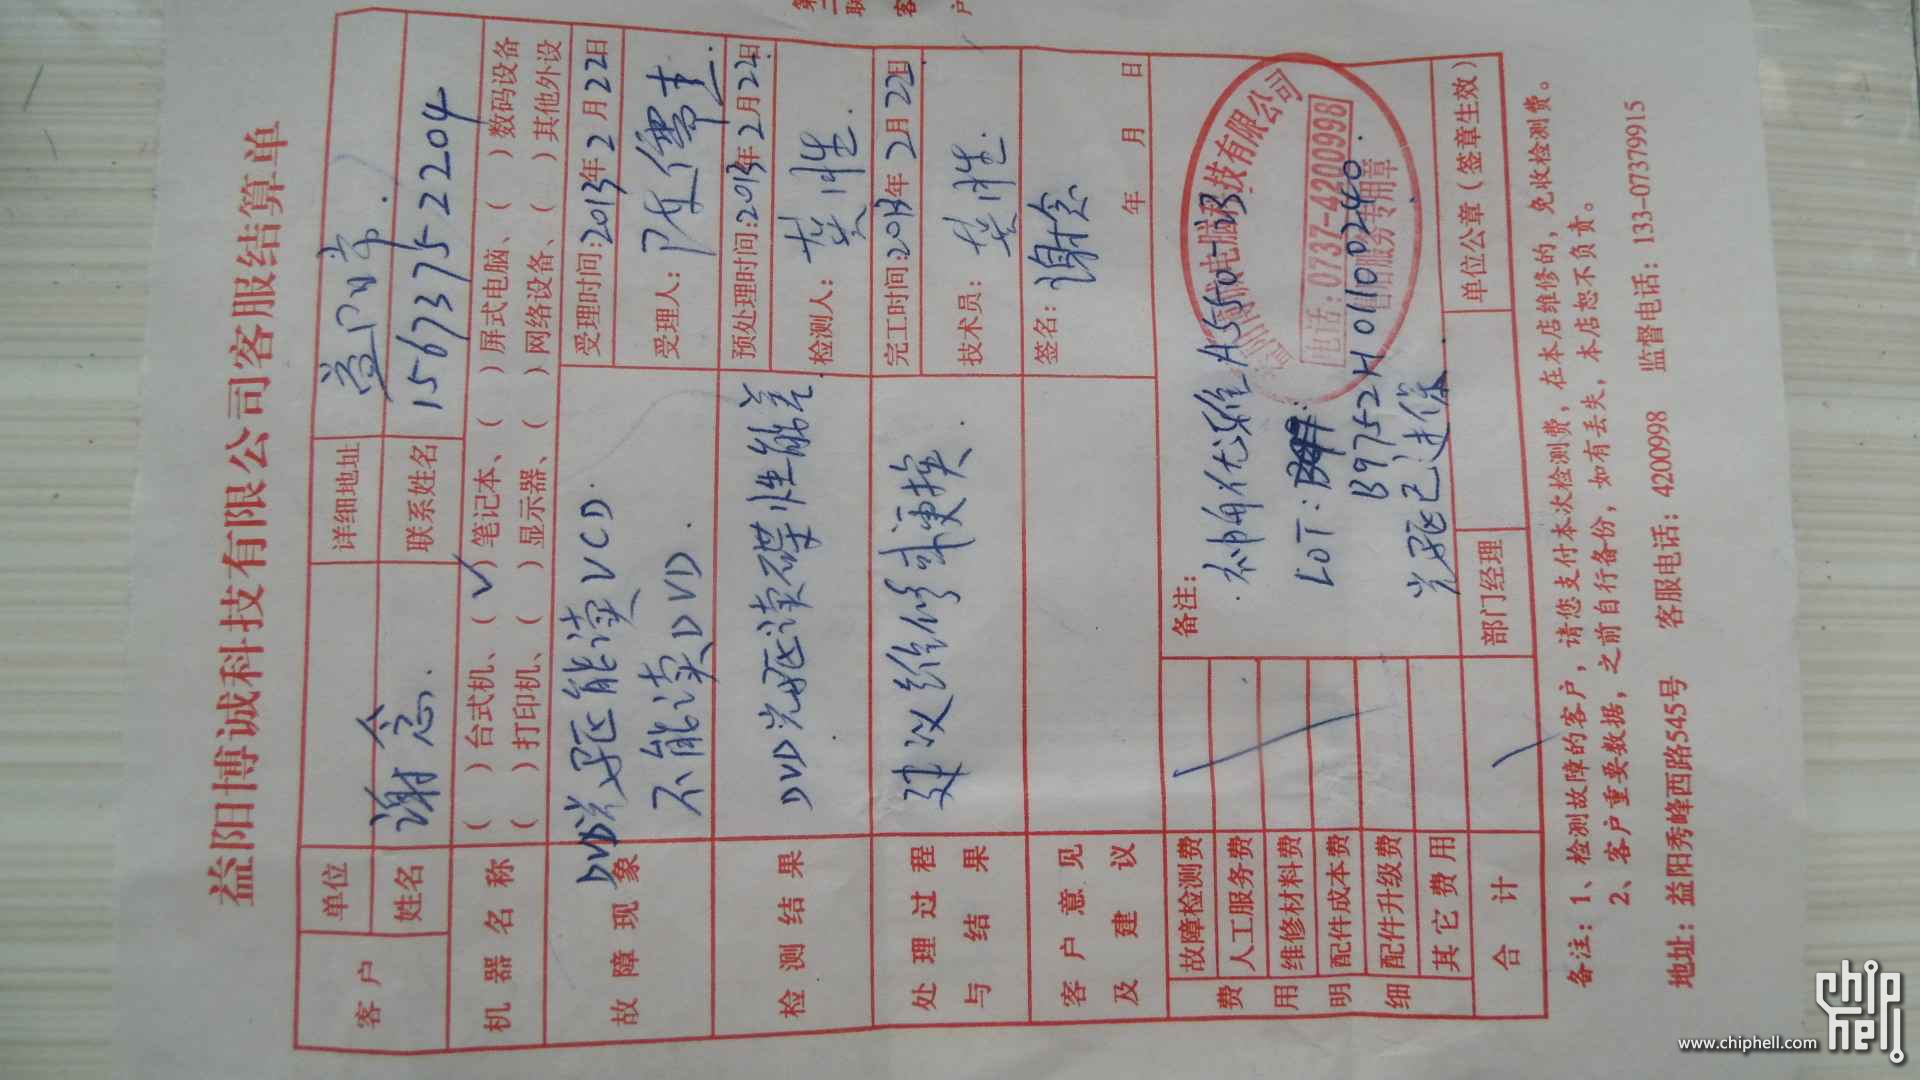 第二联 客户
益阳博诚科技有限公司客服结算单
客户 单位 详细地址 益阳市.
姓名 谢念. 联系姓名 15673752204
机器名称 ( )台式机、(√)笔记本、( )屏式电脑、( )数码设备
( )打印机、( )显示器、( )网络设备、( )其他外设
故障现象 DVD光驱能读VCD. 受理时间:2013年2月22日
不能读DVD. 受理人:
检测结果 DVD光驱读碟性能差 预处理时间:2013年2月22日
检测人:
处理过程与结果 建议维修或更换. 完工时间:2013年2月22日
技术员:
客户意见及建议 签名: 谢念
年 月 日
费用明细 故障检测费
人工服务费
维修材料费
配件成本费
配件升级费
其它费用
备注:
神舟优雅A550-i3
LOT:
B9752H01100240.
光驱已过保
电脑科技有限公司
电话:0737-4200998
售后服务专用章
合计 部门经理 单位公章(签章生效)
备注:1、检测故障的客户,请您支付本次检测费,在本店维修的,免收检测费。
2、客户重要数据,之前自行备份,如有丢失,本店恕不负责。
地址:益阳秀峰西路545号 客服电话:4200998 监督电话:133-07379915
www.chiphell.com
chip hell